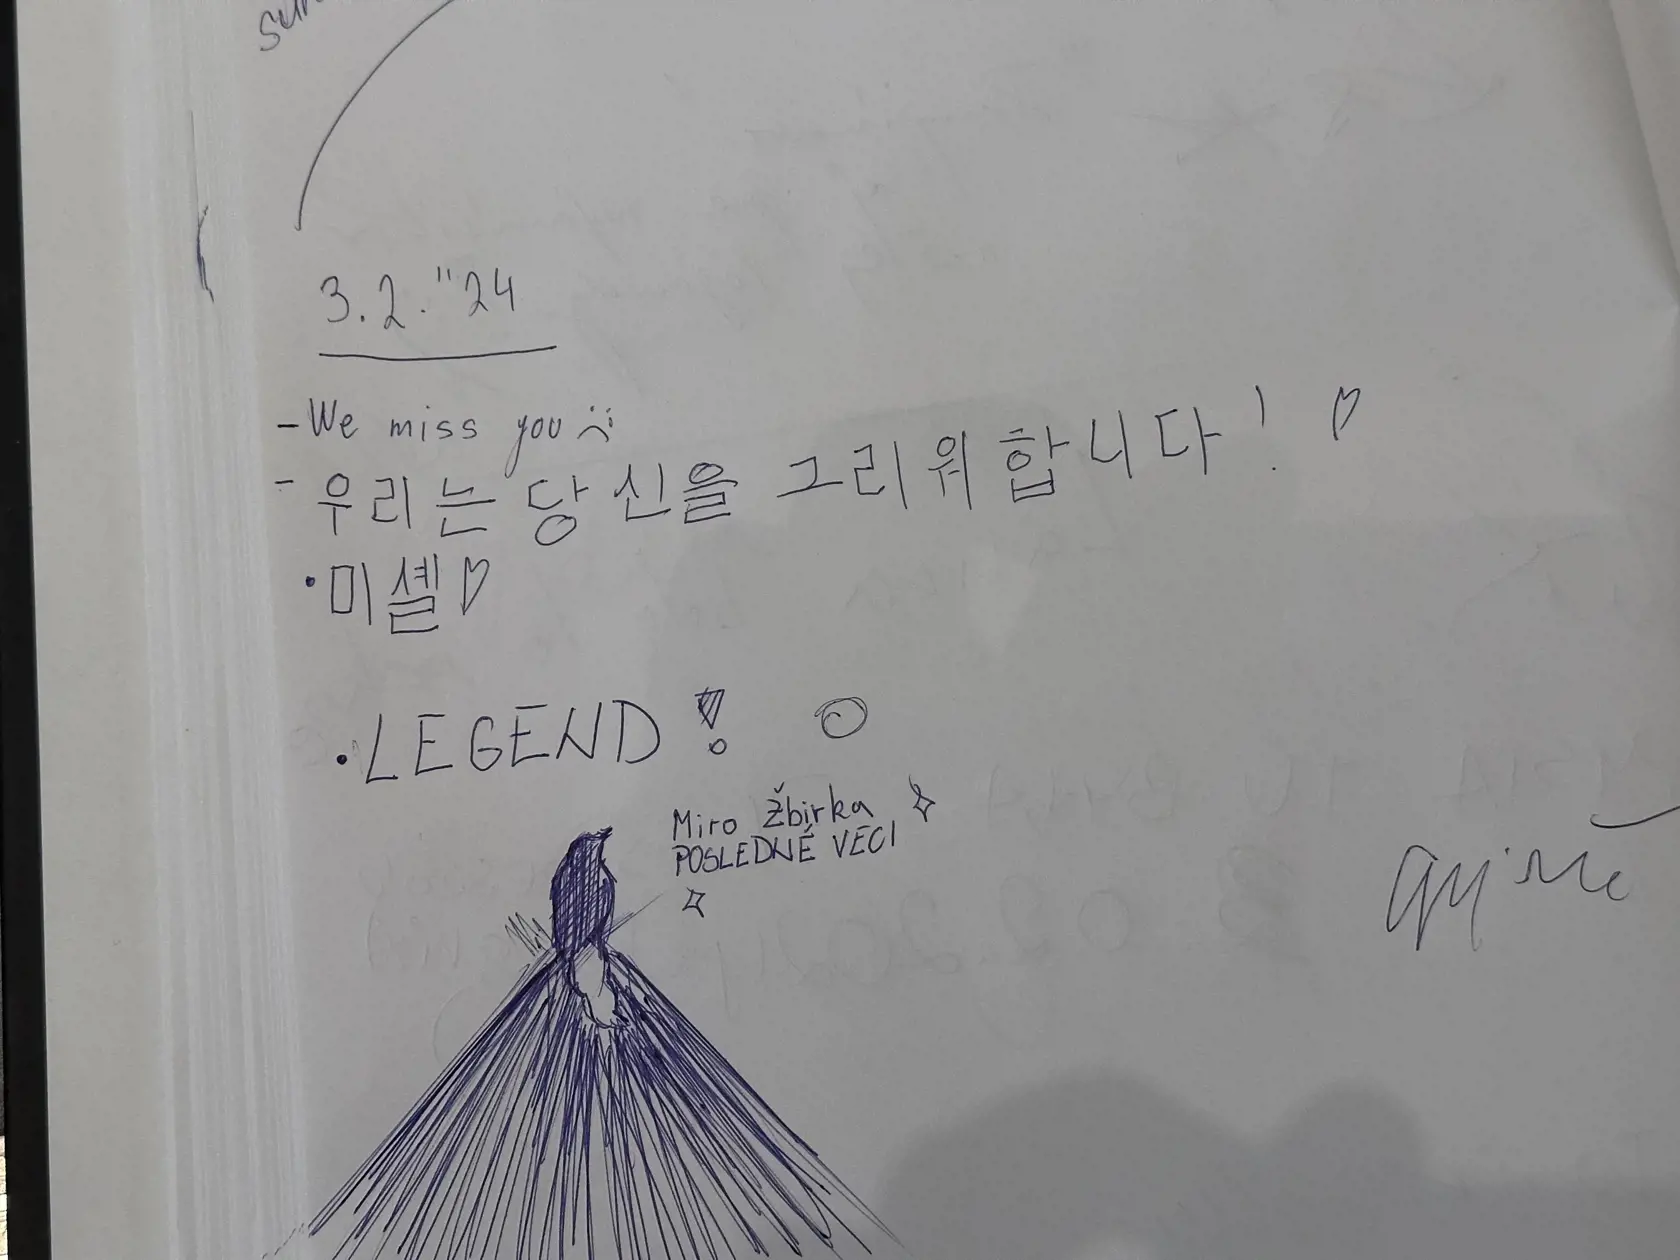 3.2."24
- We miss you
- 우리는 당신을 그리워합니다!
· 미셸
· LEGEND!
Miro Žbirka
POSLEDNÉ VECI